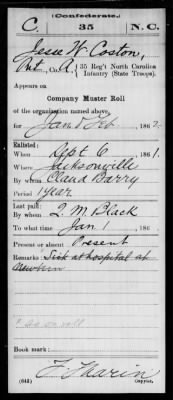 (Confederate.)
C. 35 N.C.
Jesse W Coston,
Pvt Co. A, 35 Reg't North Carolina
Infantry (State Troops).
Appears on
Company Muster Roll
of the organization named above,
for Jan & Feb, 1862.
Enlisted:
When Sept 6, 1861.
Where Jacksonville
By whom Claud Barry
Period 1 year
Last paid:
By whom Q. M. Black
To what time Jan 1, 186
Present or absent Present
Remarks: Sick at hospital at
Newbern
Book mark:
(642) Copyist.